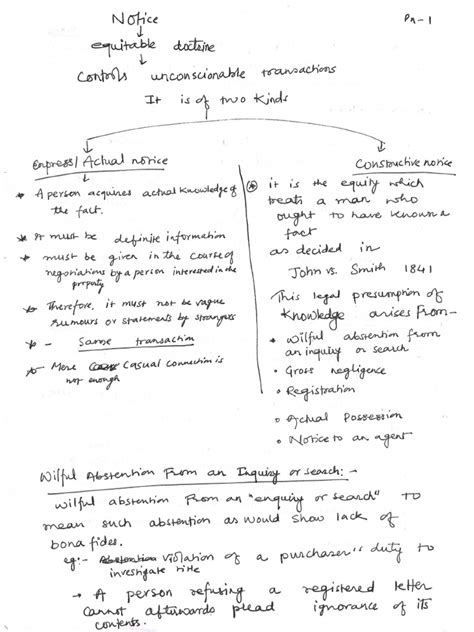 Notice
Pn-1
equitable doctrine
Controls unconscionable transactions
It is of two kinds
Express/Actual notice
A person acquires actual knowledge of
the fact.
It must be definite information
must be given in the course of
negotiations by a person interested in the
property
Therefore, it must not be vague
rumours or statements by strangers
- Same transaction
Mere Casual connection is
not enough
Constructive notice
it is the equity which
treats a man who
ought to have known a
fact
as decided in
John vs. Smith 1841
This legal presumption of
Knowledge arises From-
Wilful abstention from
an inquiry or search
Gross negligence
Registration
Actual Possession
Notice to an agent
Wilful Abstention From an Inquiry or search:-
Wilful abstention From an "enquiry or search" to
mean such abstention as would show lack of
bona fides.
eg:- violation of a purchaser's duty to
investigate title
→ A person refusing a registered letter
cannot afterwards plead ignorance of its
contents.